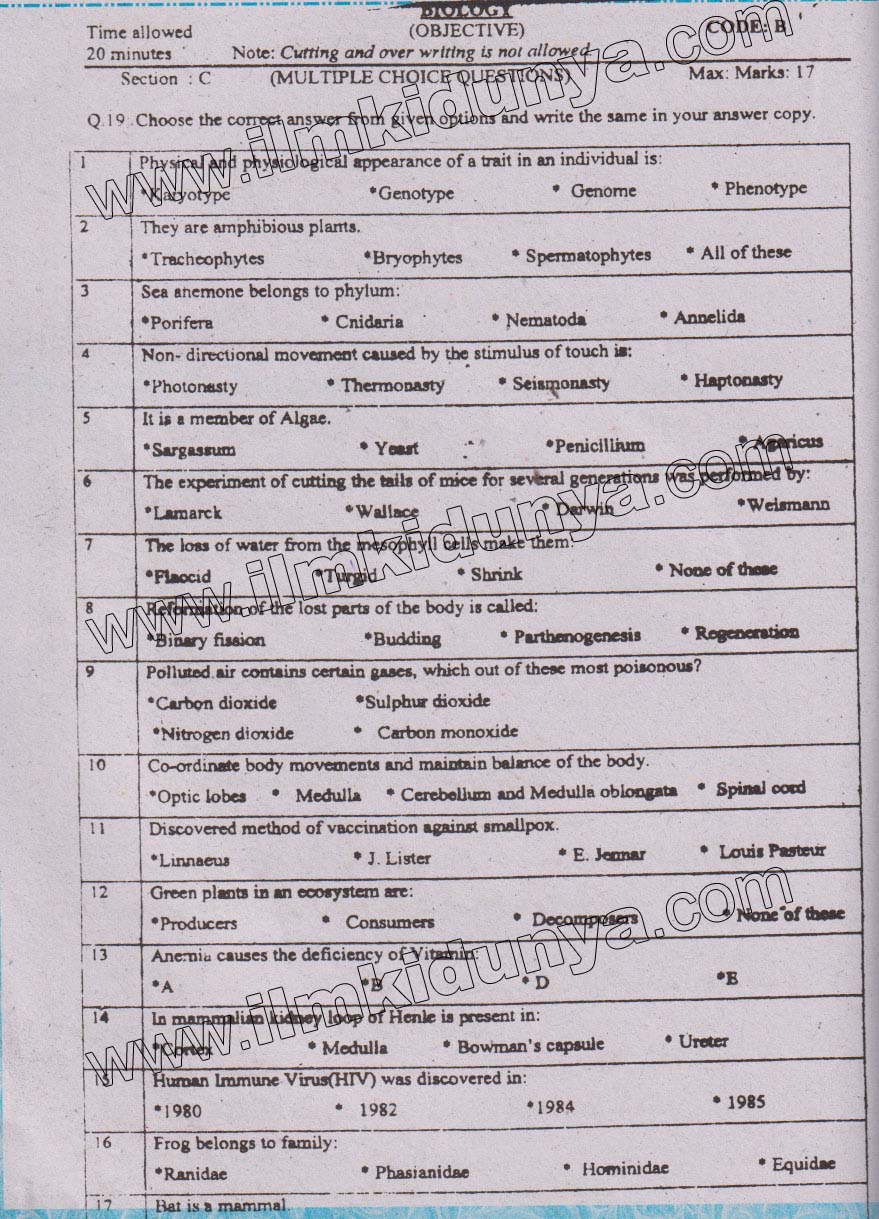 BIOLOGY
Time allowed (OBJECTIVE) CODE: B
20 minutes Note: Cutting and over writing is not allowed
Section : C (MULTIPLE CHOICE QUESTIONS) Max: Marks: 17
Q.19 Choose the correct answer from given options and write the same in your answer copy.
1 Physical and physiological appearance of a trait in an individual is:
*Karyotype *Genotype * Genome * Phenotype
2 They are amphibious plants.
*Tracheophytes *Bryophytes * Spermatophytes * All of these
3 Sea anemone belongs to phylum:
*Porifera * Cnidaria * Nematoda * Annelida
4 Non- directional movement caused by the stimulus of touch is:
*Photonasty * Thermonasty * Seismonasty * Haptonasty
5 It is a member of Algae.
*Sargassum * Yeast *Penicillium * Agaricus
6 The experiment of cutting the tails of mice for several generations was performed by:
*Lamarck *Wallace * Darwin *Weismann
7 The loss of water from the mesophyll cells make them:
*Flaccid *Turgid * Shrink * None of these
8 Reformation of the lost parts of the body is called:
*Binary fission *Budding * Parthenogenesis * Regeneration
9 Polluted air contains certain gases, which out of these most poisonous?
*Carbon dioxide *Sulphur dioxide
*Nitrogen dioxide * Carbon monoxide
10 Co-ordinate body movements and maintain balance of the body.
*Optic lobes * Medulla * Cerebellum and Medulla oblongata * Spinal cord
11 Discovered method of vaccination against smallpox.
*Linnaeus * J. Lister * E. Jennar * Louis Pasteur
12 Green plants in an ecosystem are:
*Producers * Consumers * Decomposers * None of these
13 Anemia causes the deficiency of Vitamin:
*A *B * D *E
14 In mammalian kidney loop of Henle is present in:
*Cortex * Medulla * Bowman's capsule * Ureter
15 Human Immune Virus(HIV) was discovered in:
*1980 * 1982 *1984 * 1985
16 Frog belongs to family:
*Ranidae * Phasianidae * Hominidae * Equidae
17 Bat is a mammal.
www.ilmkidunya.com
www.ilmkidunya.com
www.ilmkidunya.com